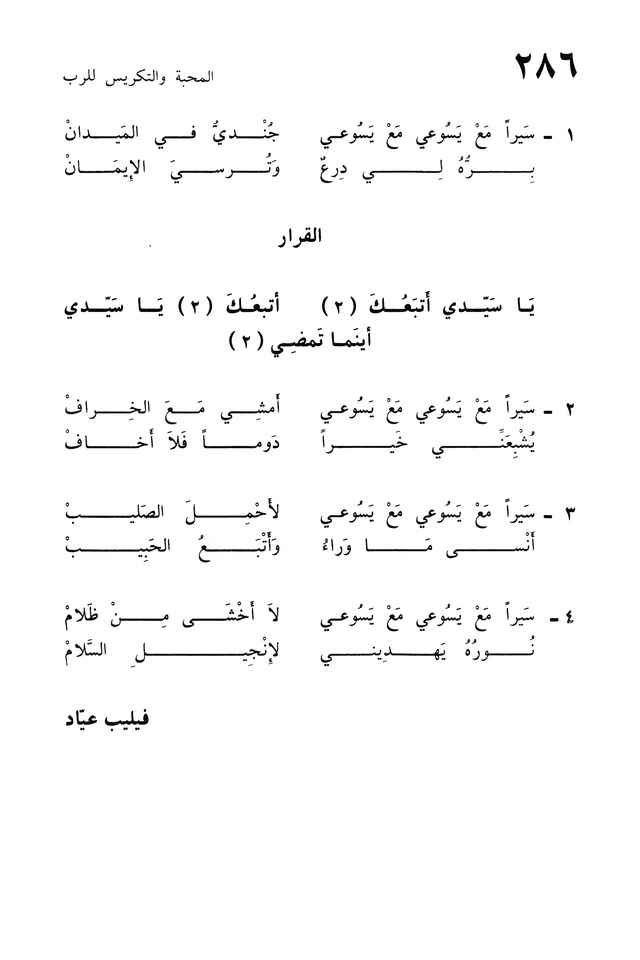 ٢٨٦
المحبة والتكريس للرب
١ - سَيراً مَعْ يَسُوعي مَعْ يَسُوعي جُنْديٌّ في المَيدانْ
بِرُّهُ لِي دِرعٌ وَتُرسيَ الإِيمَانْ
القرار
يَا سَيّدي أَتبَعُكَ (٢) أتبعُكَ (٢) يَا سَيّدي
أينَما تَمضِي (٢)
٢ - سَيراً مَعْ يَسُوعي مَعْ يَسُوعي أَمشِي مَعَ الخِرافْ
يُشْبِعَنِّي خَيراً دَوماً فَلاَ أَخافْ
٣ - سَيراً مَعْ يَسُوعي مَعْ يَسُوعي لأَحْمِلَ الصَليبْ
أَنْسى مَا وَراءُ وَأَتْبَعُ الحَبِيبْ
٤ - سَيراً مَعْ يَسُوعي مَعْ يَسُوعي لاَ أَخْشَى مِنْ ظَلامْ
نُورُهُ يَهدِيني لإِنْجيلِ السَّلامْ
فيليب عيّاد